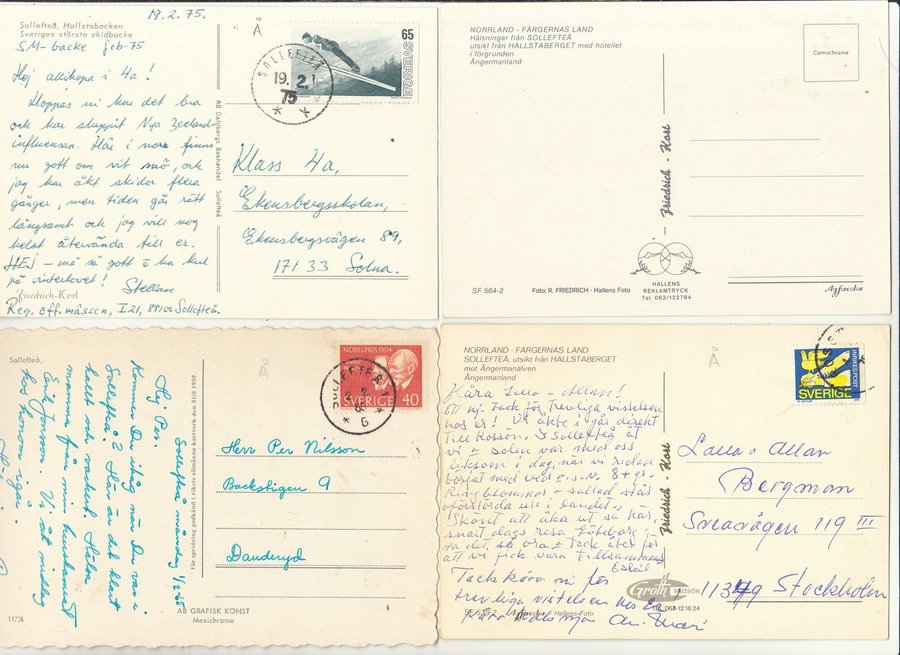 19.2.75.
Sollefteå, Hallstabacken
Sveriges största skidbacke
SM-backe feb-75
Hej allihopa i 4a!
Hoppas ni har det bra
och har sluppit Nya Zeeland-
influensan. Här i norr finns
nu gott om vit snö, och
jag har åkt skidor flera
gånger, men tiden går rätt
långsamt och jag vill nog
helst återvända till er.
HEJ - må så gott & ha kul
på vinterlovet!
Stellan
Friedrich-Kort
Reg. off. mässen, I 21, 88100 Sollefteå.
AB Dahlbergs Bokhandel Sollefteå
Å
65
SVERIGE
SOLLEFTEÅ
19.2.
75
Klass 4a,
Ekensbergsskolan,
Ekensbergsvägen 89,
171 33 Solna.
NORRLAND - FÄRGERNAS LAND
Hälsningar från SOLLEFTEÅ
utsikt från HALLSTABERGET med hotellet
i förgrunden
Ångermanland
Comochrome
Friedrich - Kort
HALLENS
REKLAMTRYCK
Tel. 063/122784
SF 564-2
Foto: R. FRIEDRICH - Hallens Foto
Agfacolor
Sollefteå,
Sollefteå måndag 1/2-65
Hej Per.
Kommer Du ihåg när Du var i
Sollefteå? Här är det klart
kallt och vackert. Hälsa
mamma från min
Eril Jonsson. Vi åt middag
hos honom igår.
117/6
För spridning godkänd i rikets allmänna kartverk den 31/8 1959
AB GRAFISK KONST
Mexichrome
Å
NOBELPRIS 1904
SVERIGE 40
SOLLEFTEÅ
Herr Per Nilsson
Backstigen 9
Danderyd
NORRLAND - FÄRGERNAS LAND
SOLLEFTEÅ, utsikt från HALLSTABERGET
mot Ångermanälven
Ångermanland
Kära
Ett nj. Tack för trevliga vistelsen
hos er! Vi åkte i går direkt
till Rossön. I Sollefteå åt
vi - solen var med oss
liksom i dag, när vi redan
börjat med ved
Ringblommor - sallad står
Skönt att åka ut så här,
snart dags resa Göteborg
Tack åter för
att vi fick vara tillsammans
Tack kära ni för
trevliga vistelsen
Ann Mari
Friedrich - Kort
Groth
Agfacolor
Hallens Foto
Å
INRIKES POST
SVERIGE
Allan
Bergman
Sveavägen 119 III
Stockholm